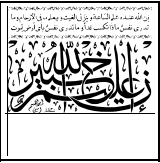 إن الله عنده علم الساعة وينزل الغيث ويعلم ما في الأرحام وما
تدري نفس ماذا تكسب غدا وما تدري نفس بأي أرض تموت
إن الله عليم خبير